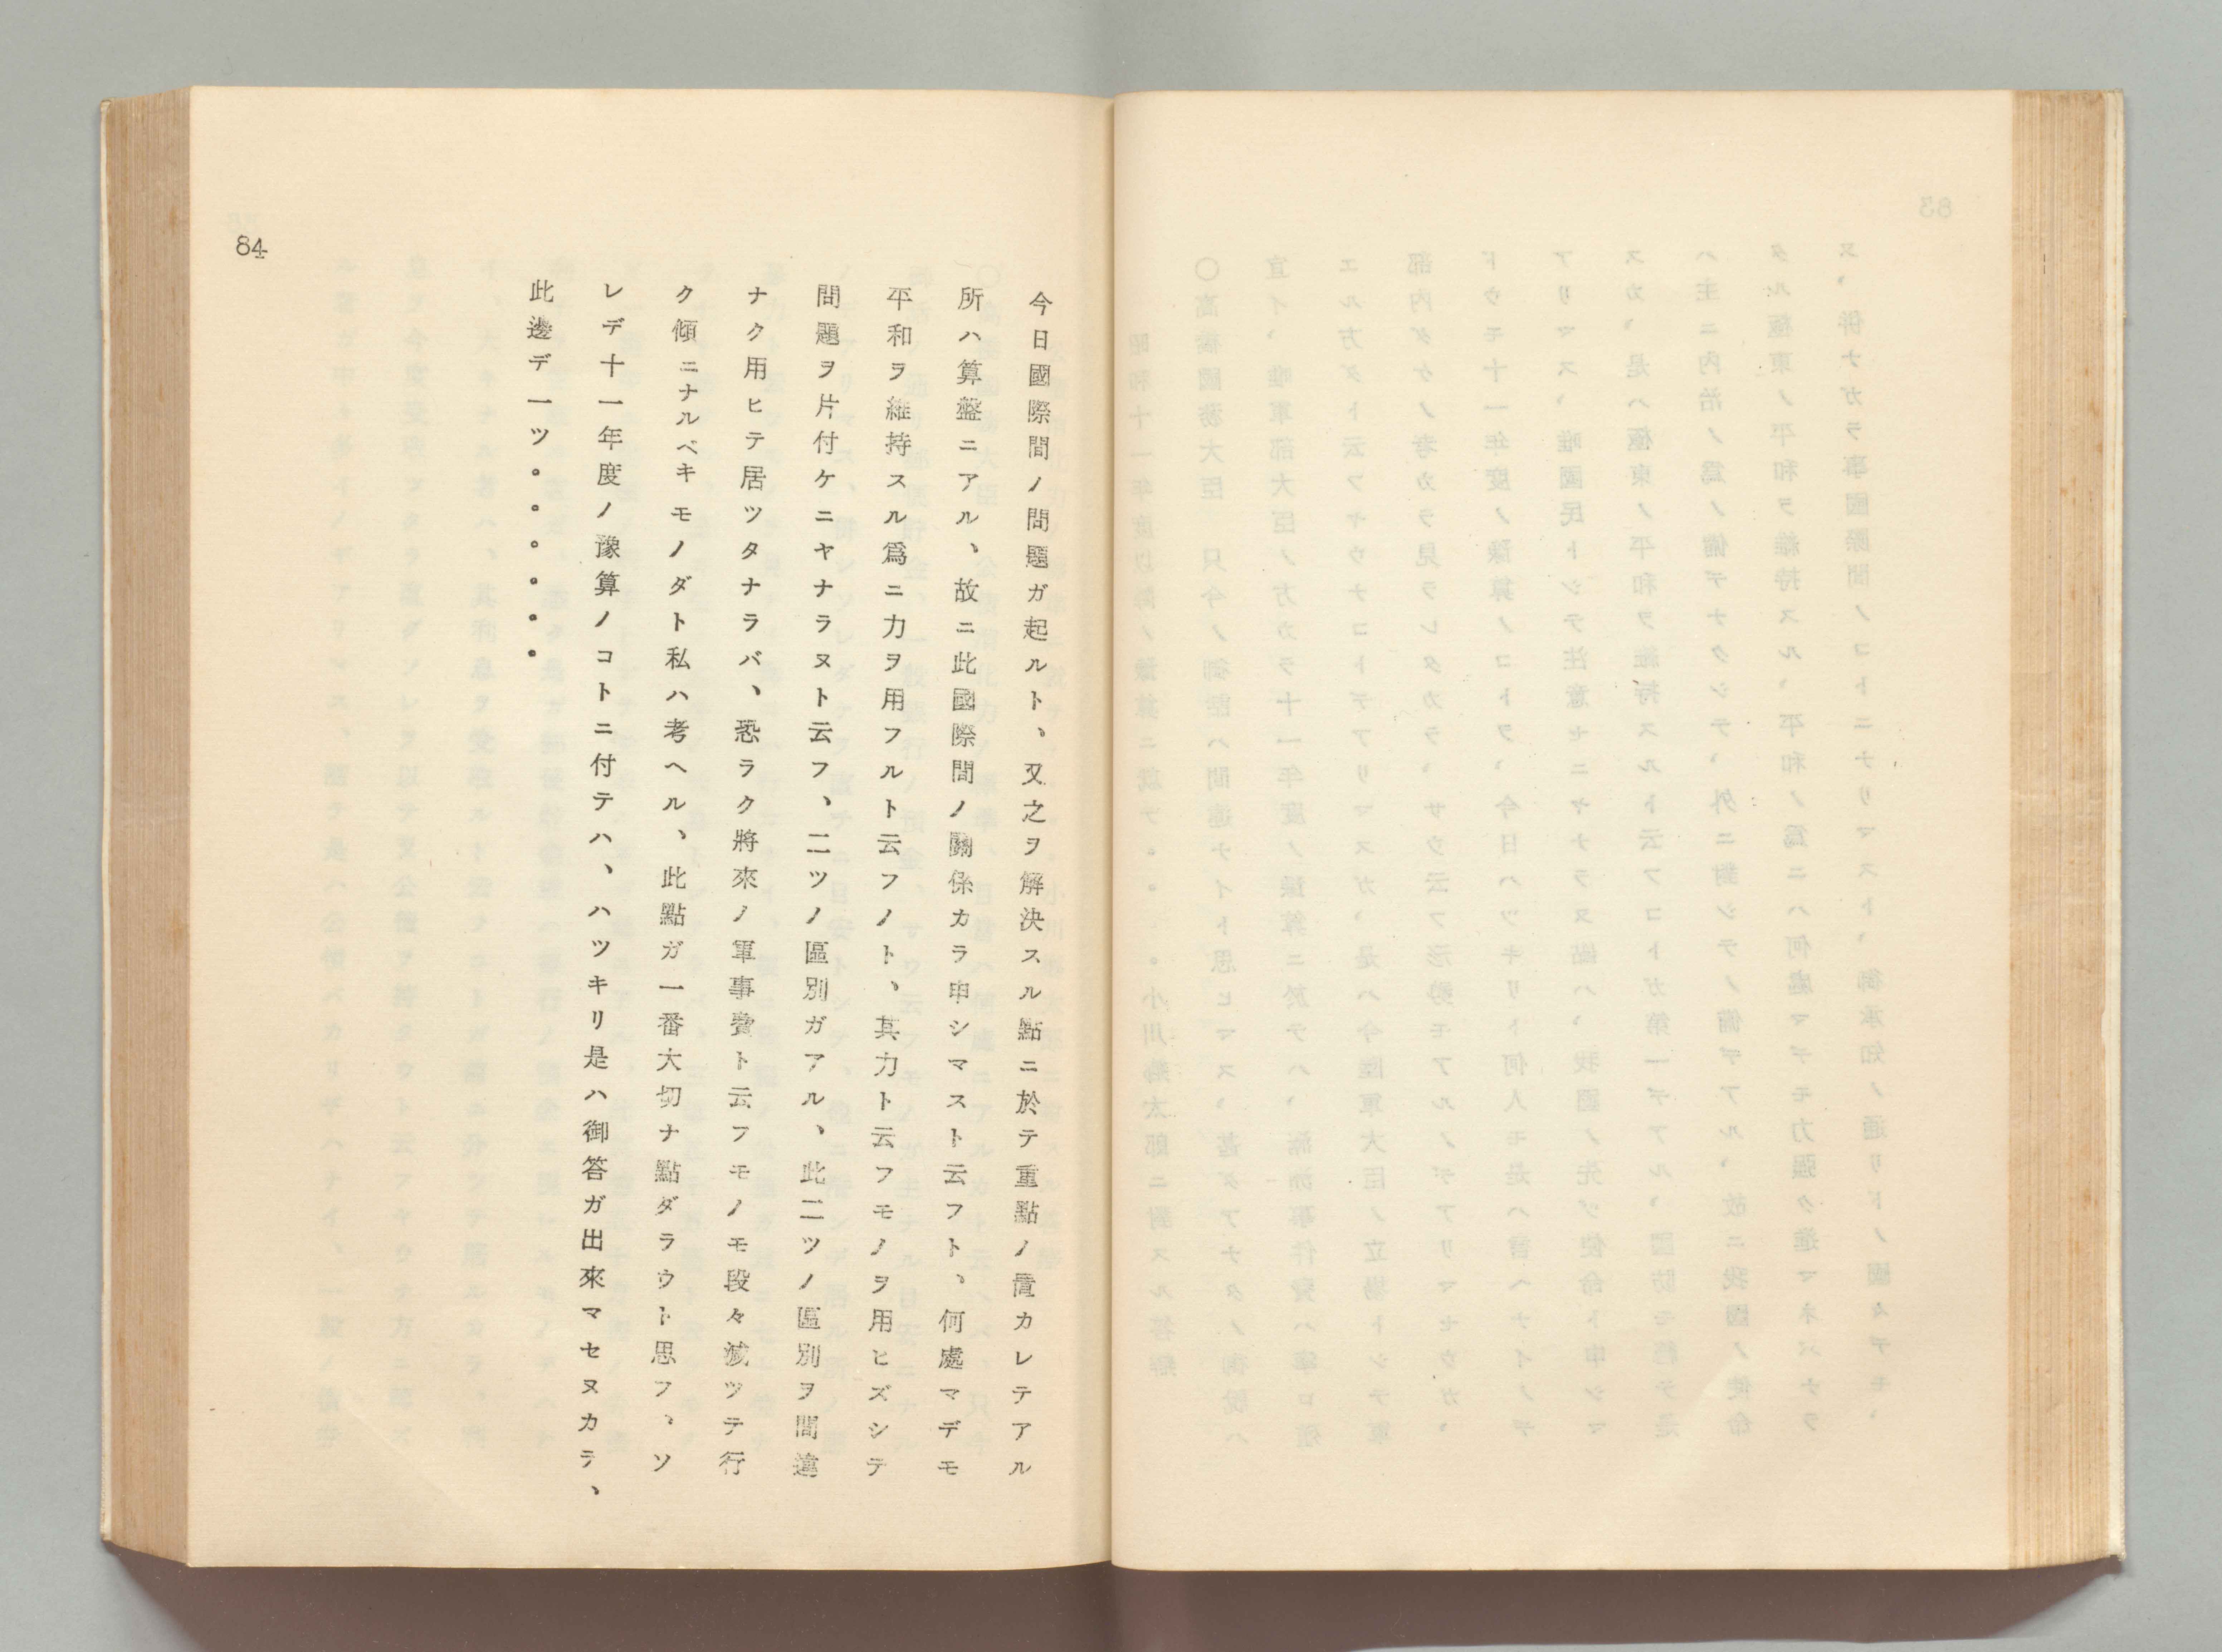 84
今日國際間ノ問題ガ起ルト、又之ヲ解決スル點ニ於テ重點ノ置カレテアル
所ハ算盤ニアル、故ニ此國際間ノ關係カラ申シマスト云フト、何處マデモ
平和ヲ維持スル爲ニ力ヲ用フルト云フノト、其力ト云フモノヲ用ヒズシテ
問題ヲ片付ケニヤナラヌト云フ、二ツノ區別ガアル、此二ツノ區別ヲ間違
ナク用ヒテ居ツタナラバ、恐ラク將來ノ軍事費ト云フモノモ段々減ツテ行
ク傾ニナルベキモノダト私ハ考ヘル、此點ガ一番大切ナ點ダラウト思フ、ソ
レデ十一年度ノ豫算ノコトニ付テハ、ハツキリ是ハ御答ガ出來マセヌカラ、
此邊デ一ツ。。。。。。